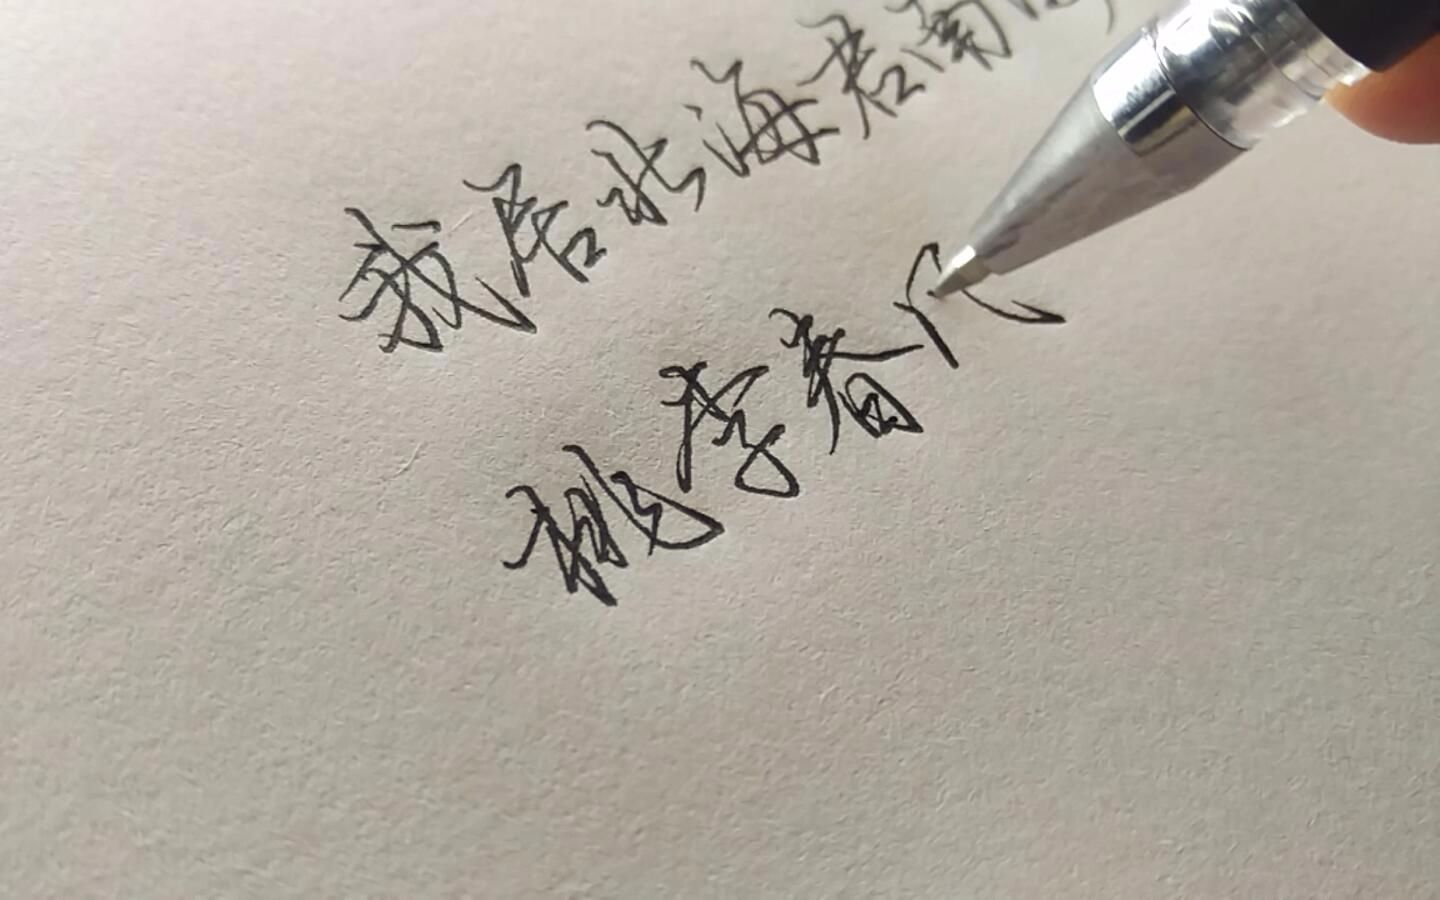 我居北海君南海
桃李春风